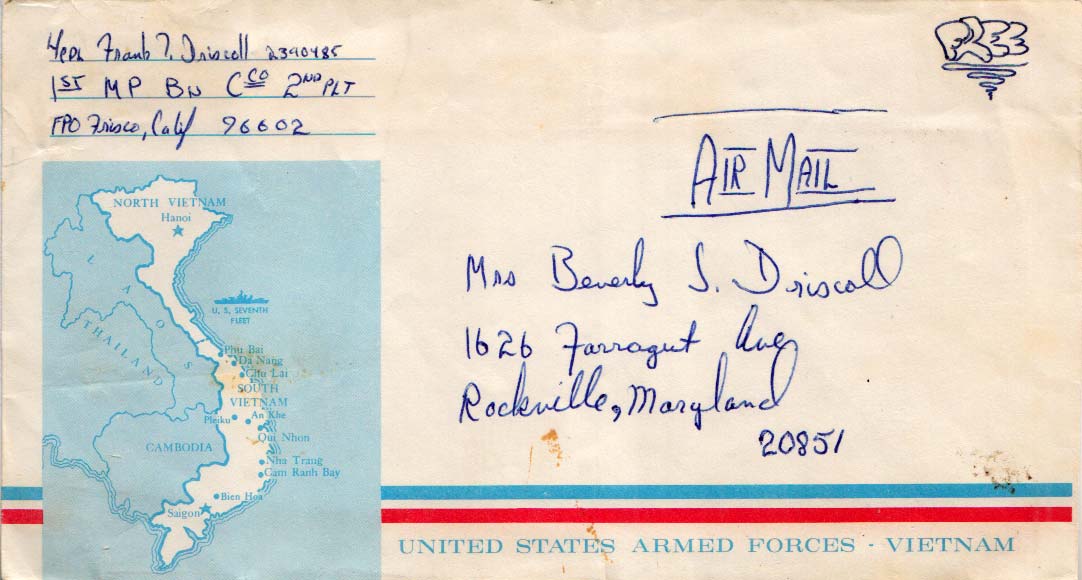 L/Cpl Frank T. Driscoll 2390485
1ST MP BN C CO 2ND PLT
FPO Frisco, Calif 96602
FREE
AIR MAIL
Mrs Beverly S. Driscoll
1626 Farragut Ave
Rockville, Maryland
20851
NORTH VIETNAM
Hanoi
LAOS
U. S. SEVENTH
FLEET
THAILAND
Phu Bai
Da Nang
Chu Lai
SOUTH
VIETNAM
Pleiku
An Khe
Qui Nhon
CAMBODIA
Nha Trang
Cam Ranh Bay
Bien Hoa
Saigon
UNITED STATES ARMED FORCES - VIETNAM